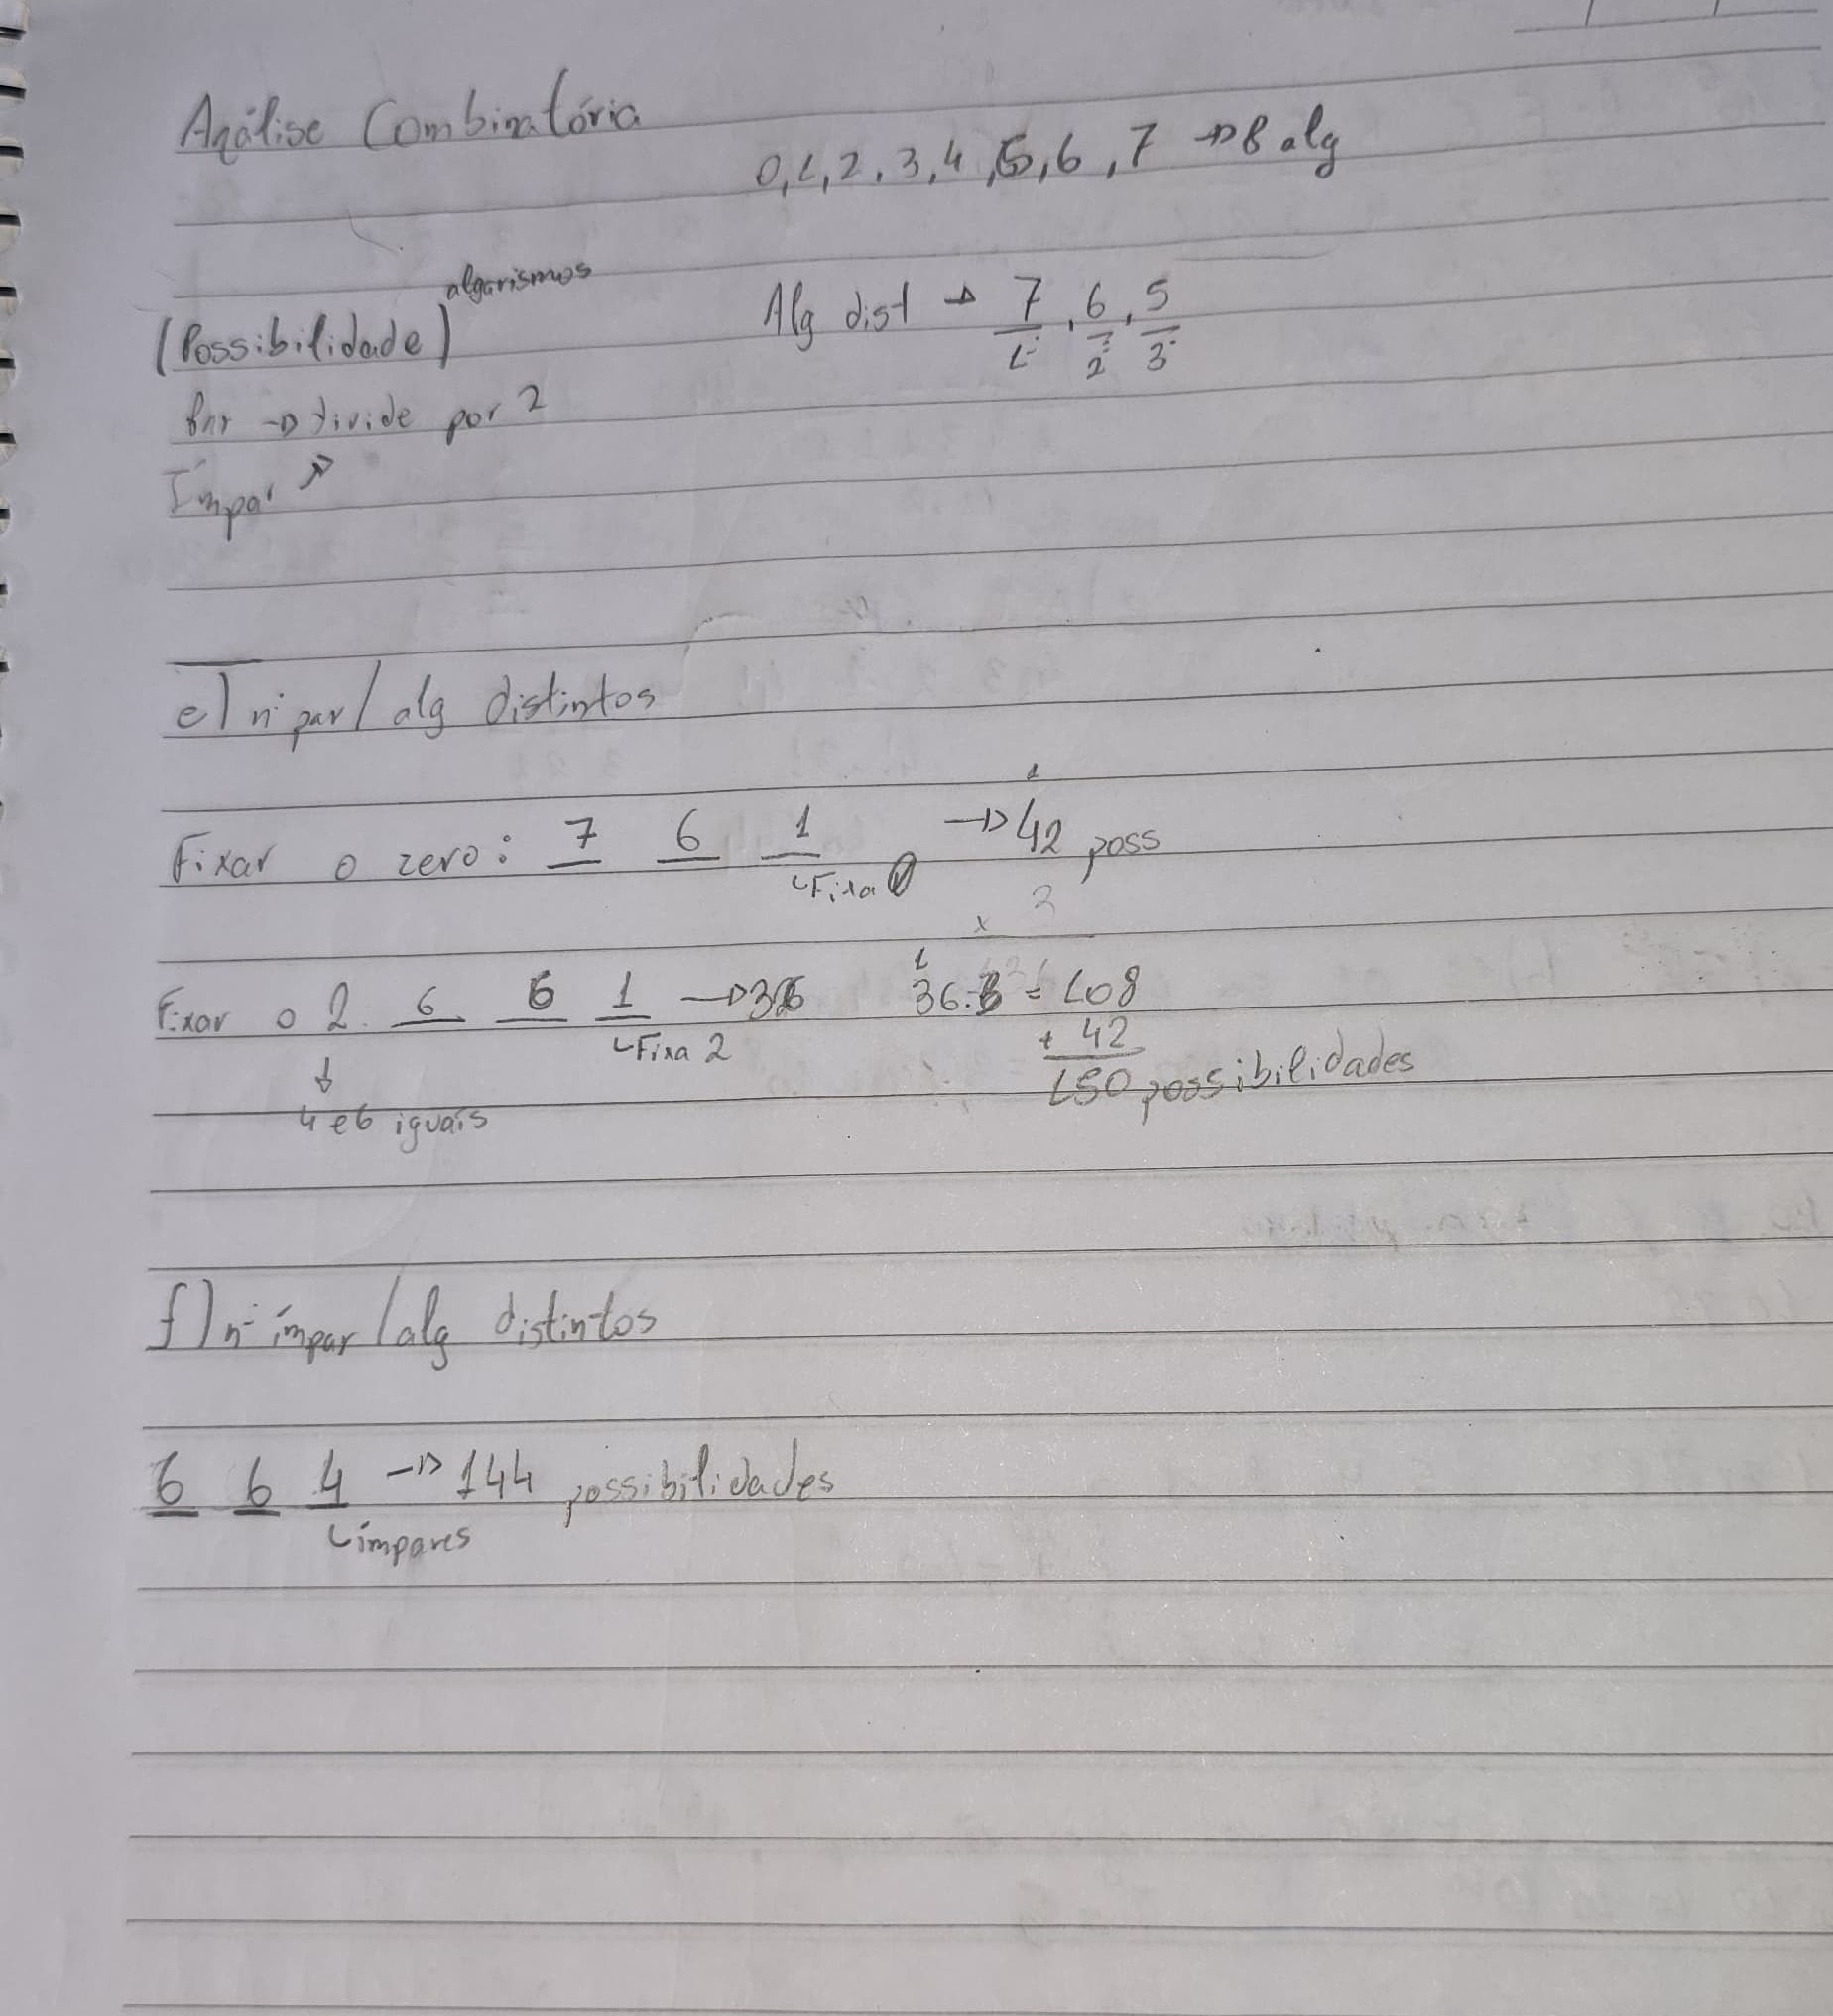 Análise Combinatória
0,1,2,3,4,5,6,7 → 8 alg
algarismos
(Possibilidade)
Alg dist → 7, 6, 5
1º 2º 3º
Par → divide por 2
Ímpar ↗
e) nº par/alg distintos
Fixar o zero: 7 6 1 → 42 poss
↳Fixa 0
x 3
Fixar o 2. 6 6 1 → 36 36.3 = 108
↳Fixa 2 + 42
150 possibilidades
↓
4 e 6 iguais
f) nº ímpar/alg distintos
6 6 4 → 144 possibilidades
↳ímpares